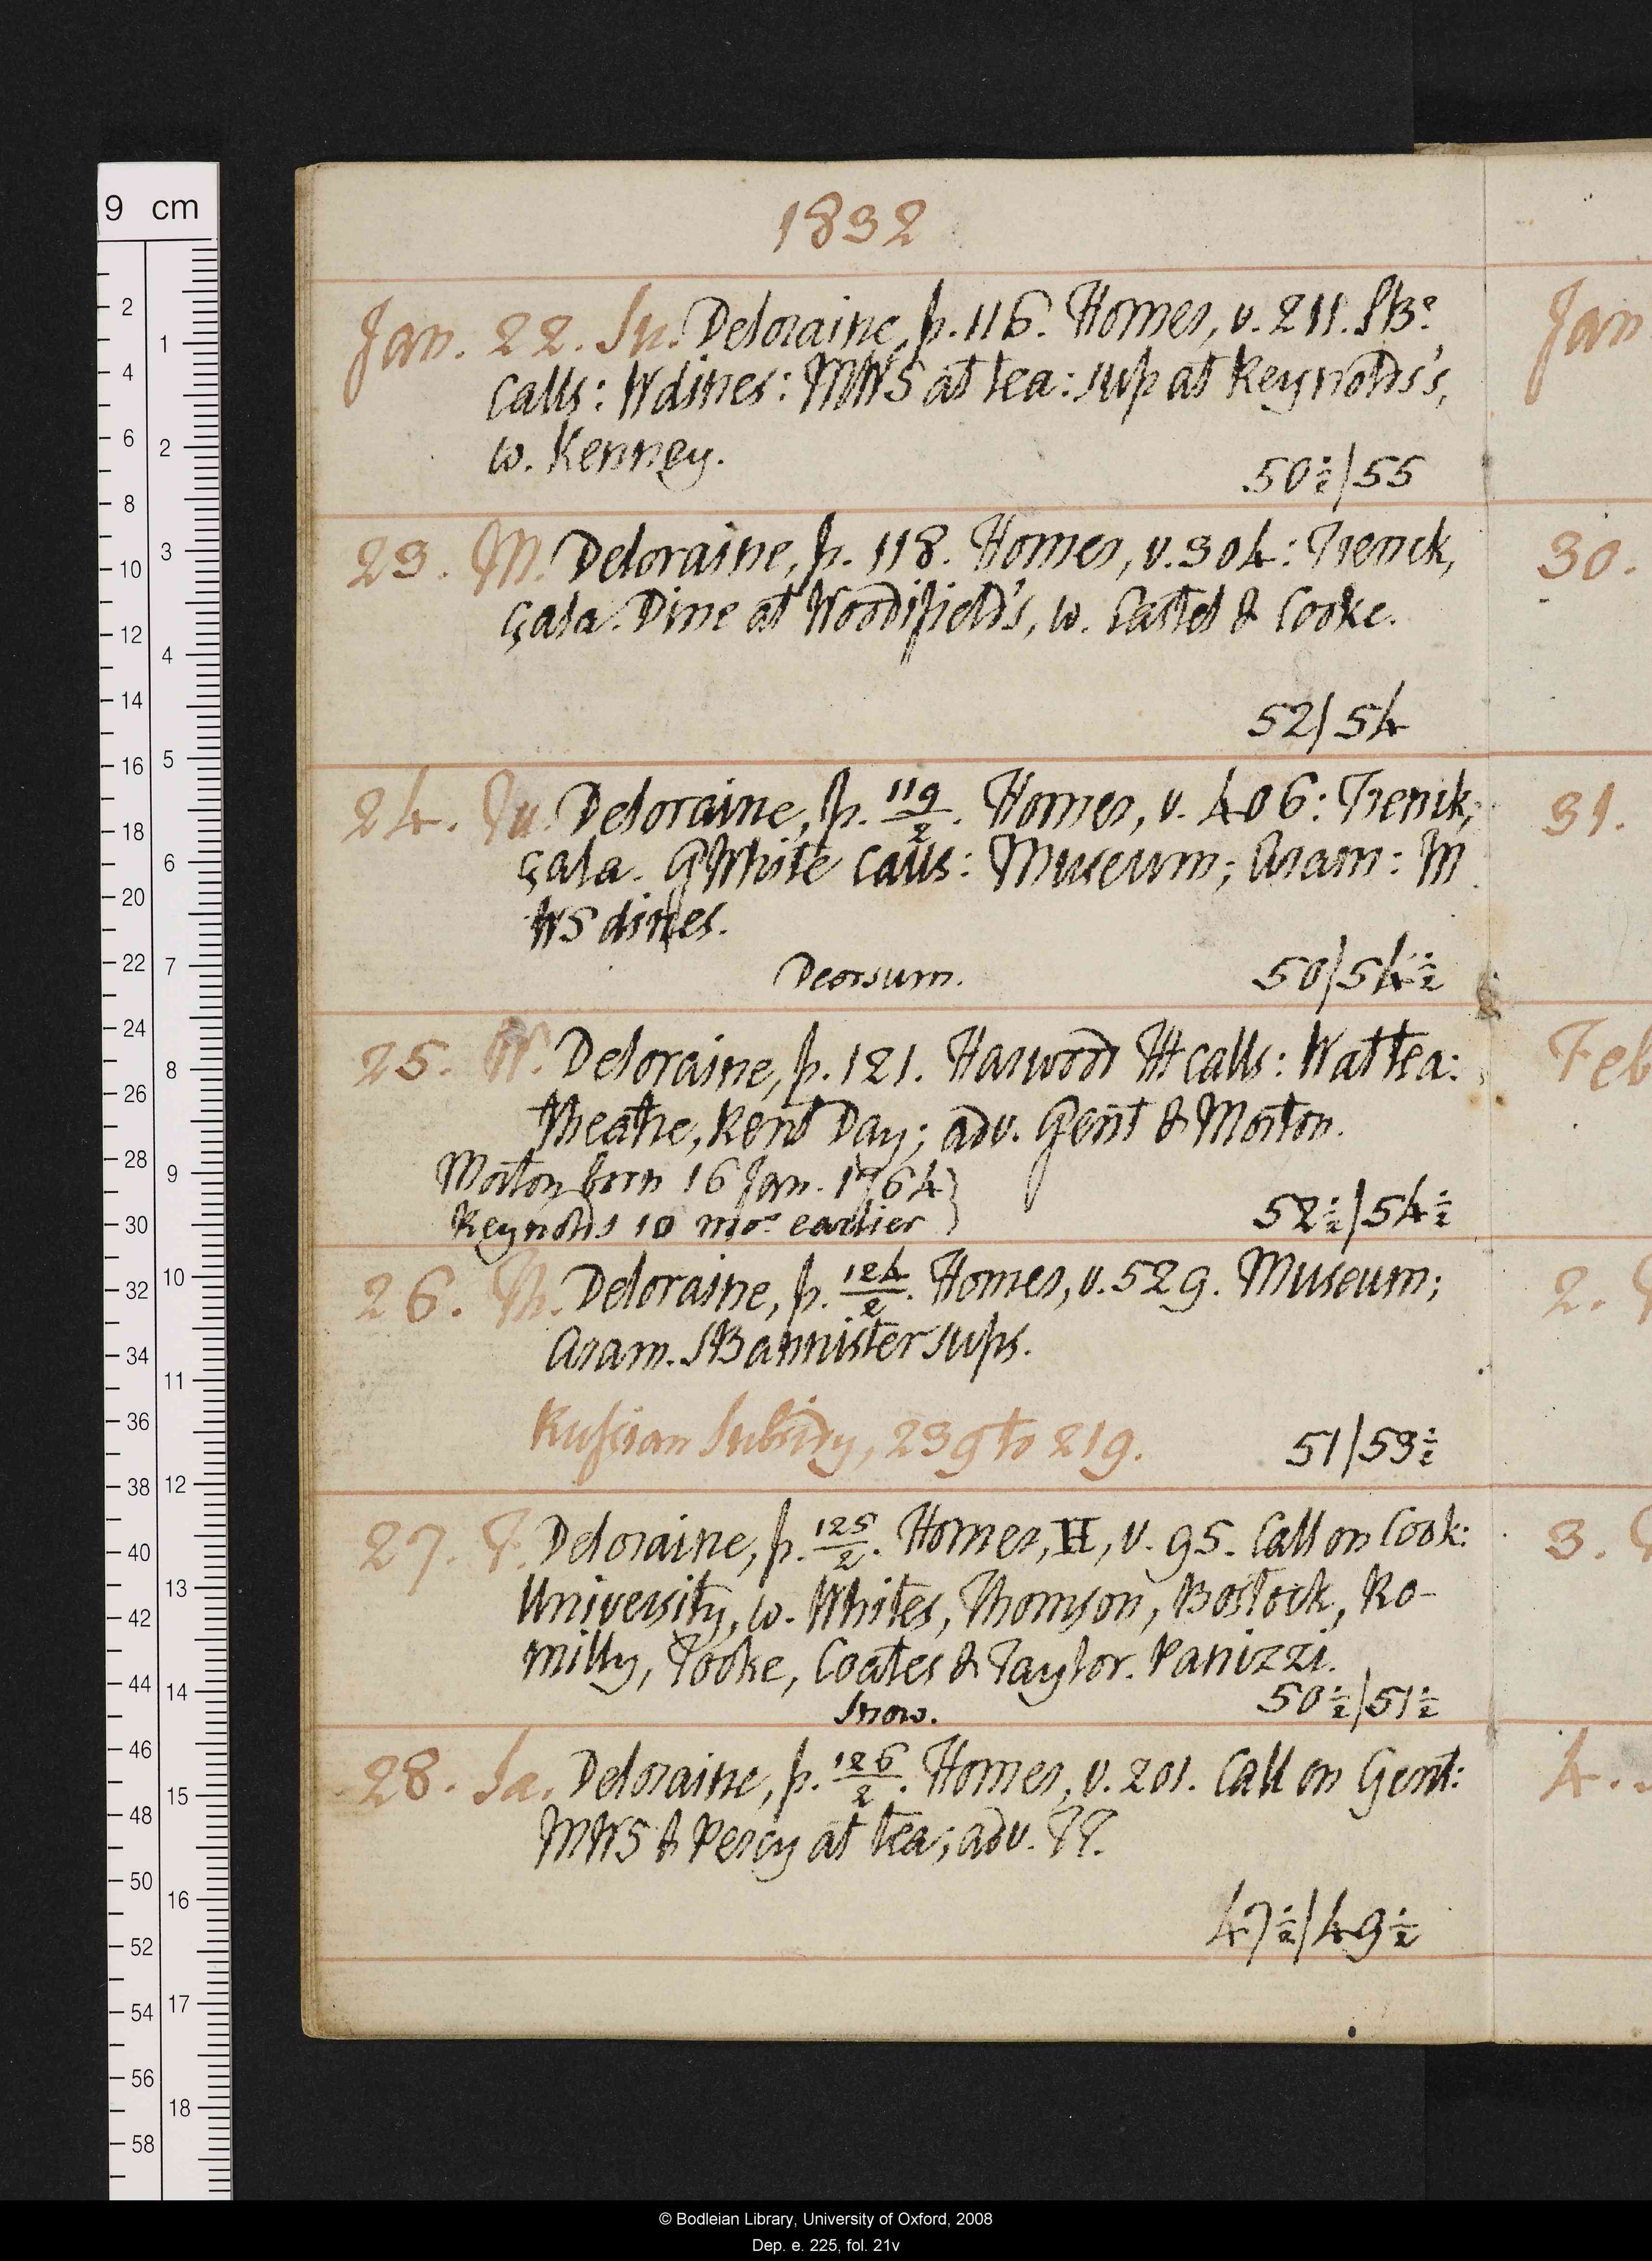 1832
Jan. 22. Su. Deloraine, p. 116. Homer, v. 211. SBe
calls: W dines: MWS at tea: sup at Reynolds's,
w. Kenney.
50½/55
23. M. Deloraine, p. 118. Homer, v. 304: Trenck,
çala. Dine at Woodifield's, w. Castel & Cooke.
52/54
24. Tu. Deloraine, p. 119/2. Homer, v. 406: Trenck,
çala. G White calls: Museum; Aram: M
WS dines.
Deorsum.
50/54½
25. W. Deloraine, p. 121. Harwood HH calls: W at tea:
theatre, Rent Day; adv. Gent & Morton.
Morton born 16 Jan. 1764
Reynolds 10 mos earlier
52½/54½
26. Th. Deloraine, p. 124/2. Homer, v. 529. Museum;
Aram. SBannister sups.
Russian Subsidy, 239 to 219.
51/53½
27. F. Deloraine, p. 125/2. Homer, H, v. 95. Call on Cook:
University, w. Whites, Thomson, Bostock, Ro-
milly, Tooke, Coates & Taylor. Panizzi.
Snow.
50½/51½
28. Sa. Deloraine, p. 126/2. Homer, v. 201. Call on Gent:
MWS & Percy at tea; adv. TT.
47½/49½
Jan
30.
31.
Feb
2.
3.
4.
9 cm
© Bodleian Library, University of Oxford, 2008
Dep. e. 225, fol. 21v